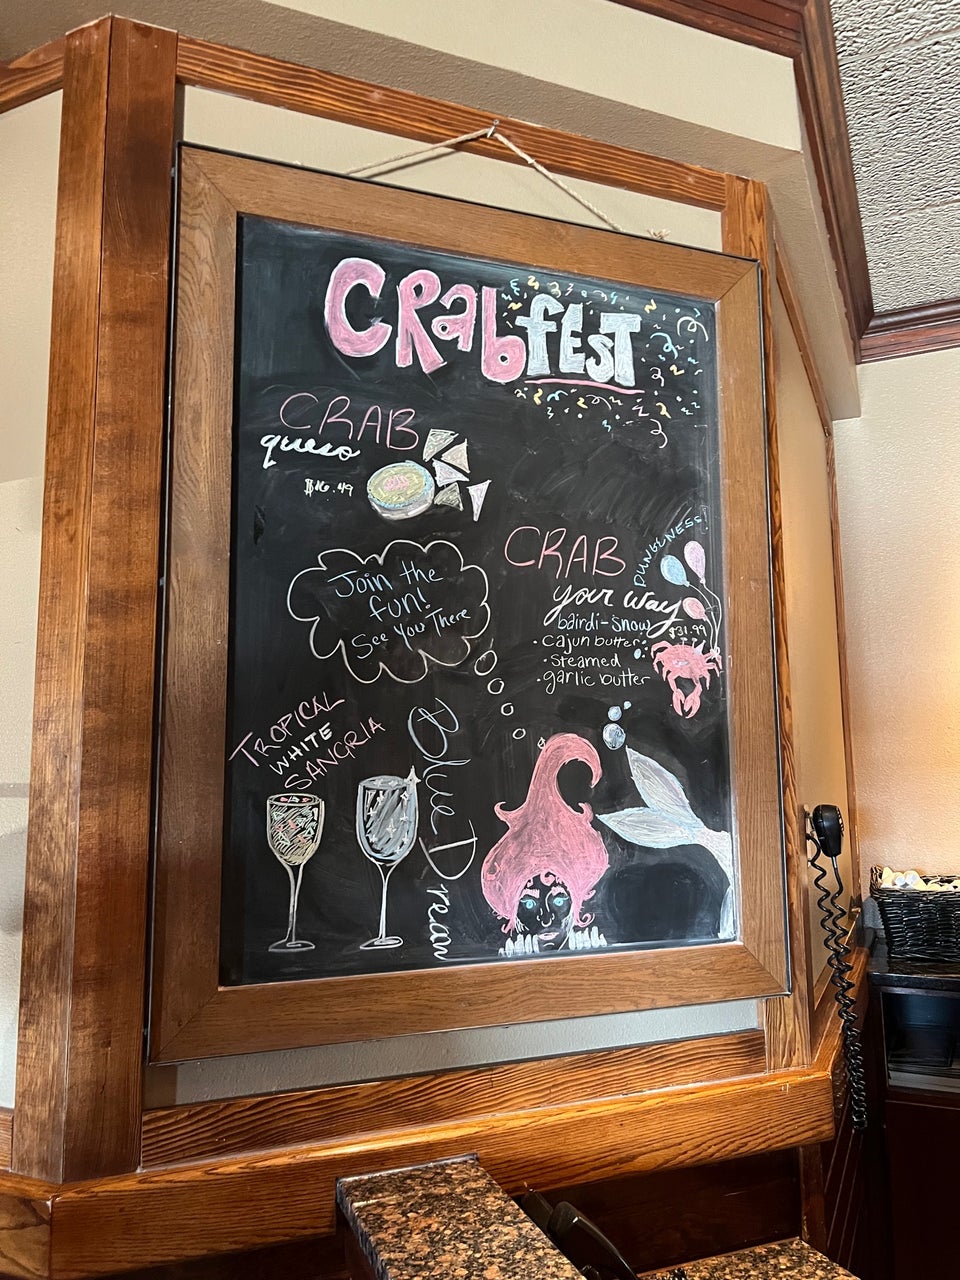 CRabfEST
CRAB
queso
$16.49
CRAB
DUNGENESS!
your way
bairdi-snow
$31.99
• cajun butter
• steamed
• garlic butter
Join the
fun!
See You There
TROPICAL
WHITE
SANGRIA
Blue Dream